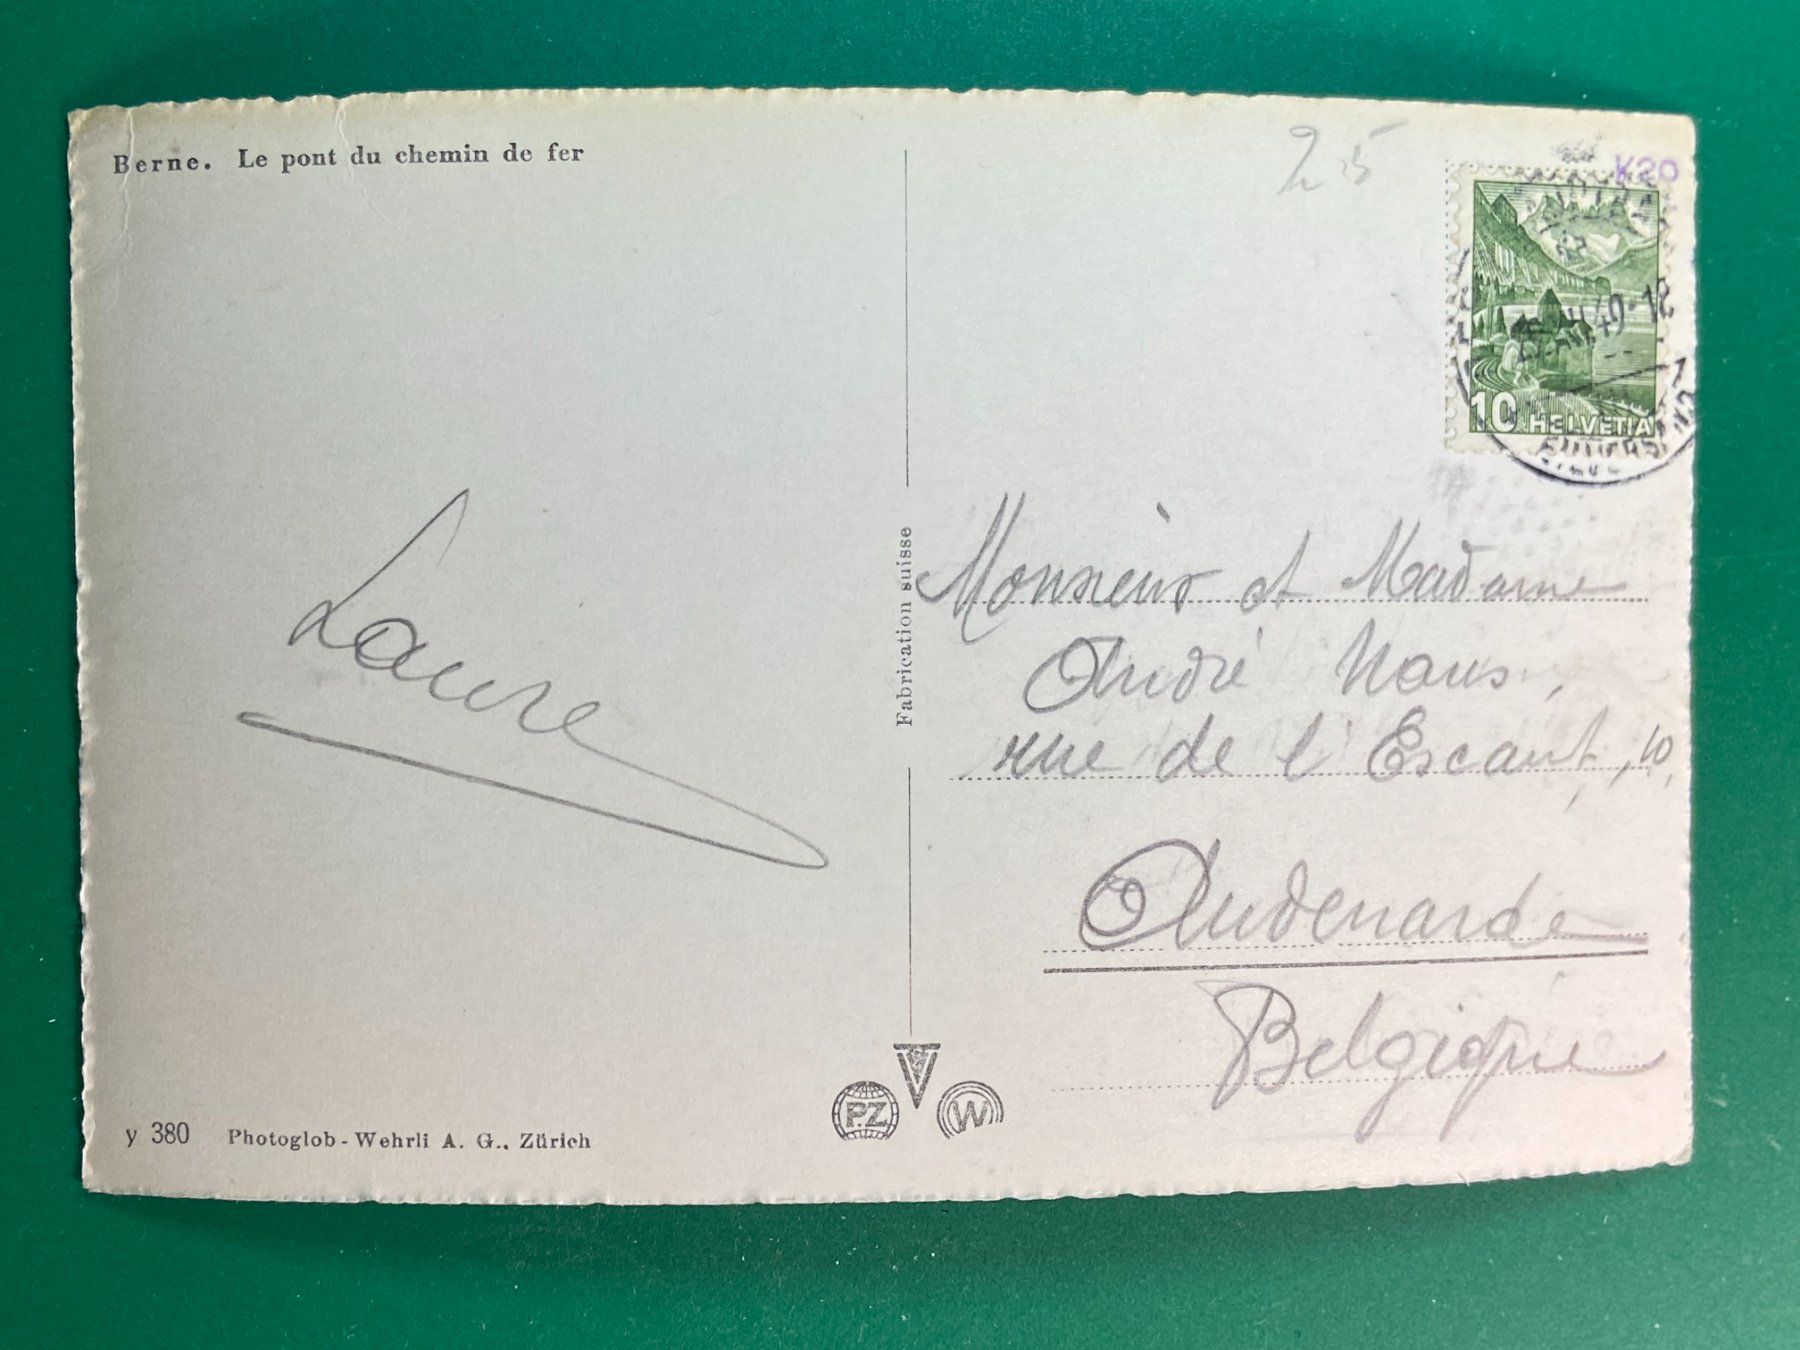 Berne. Le pont du chemin de fer
25
10 HELVETIA
Laure
Fabrication suisse
Monsieur et Madame
André Naus,
rue de l'Escaut, 10,
Audenarde
Belgique
P.Z
W
y 380 Photoglob-Wehrli A. G., Zürich